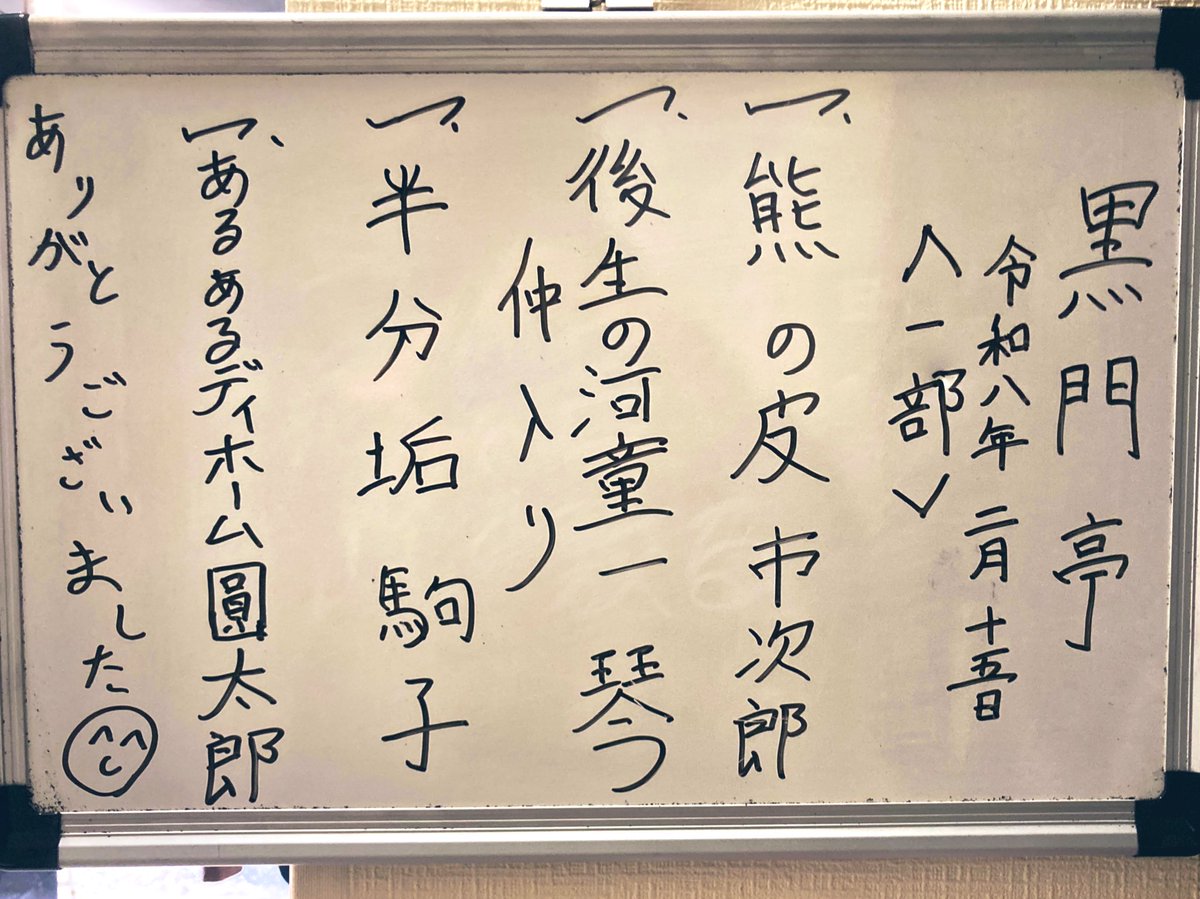 黒門亭
令和八年二月十五日
〈一部〉
一、熊の皮 市次郎
一、後生の河童 一琴
仲入り
一、半分垢 駒子
一、あるあるディホーム 圓太郎
ありがとうございました